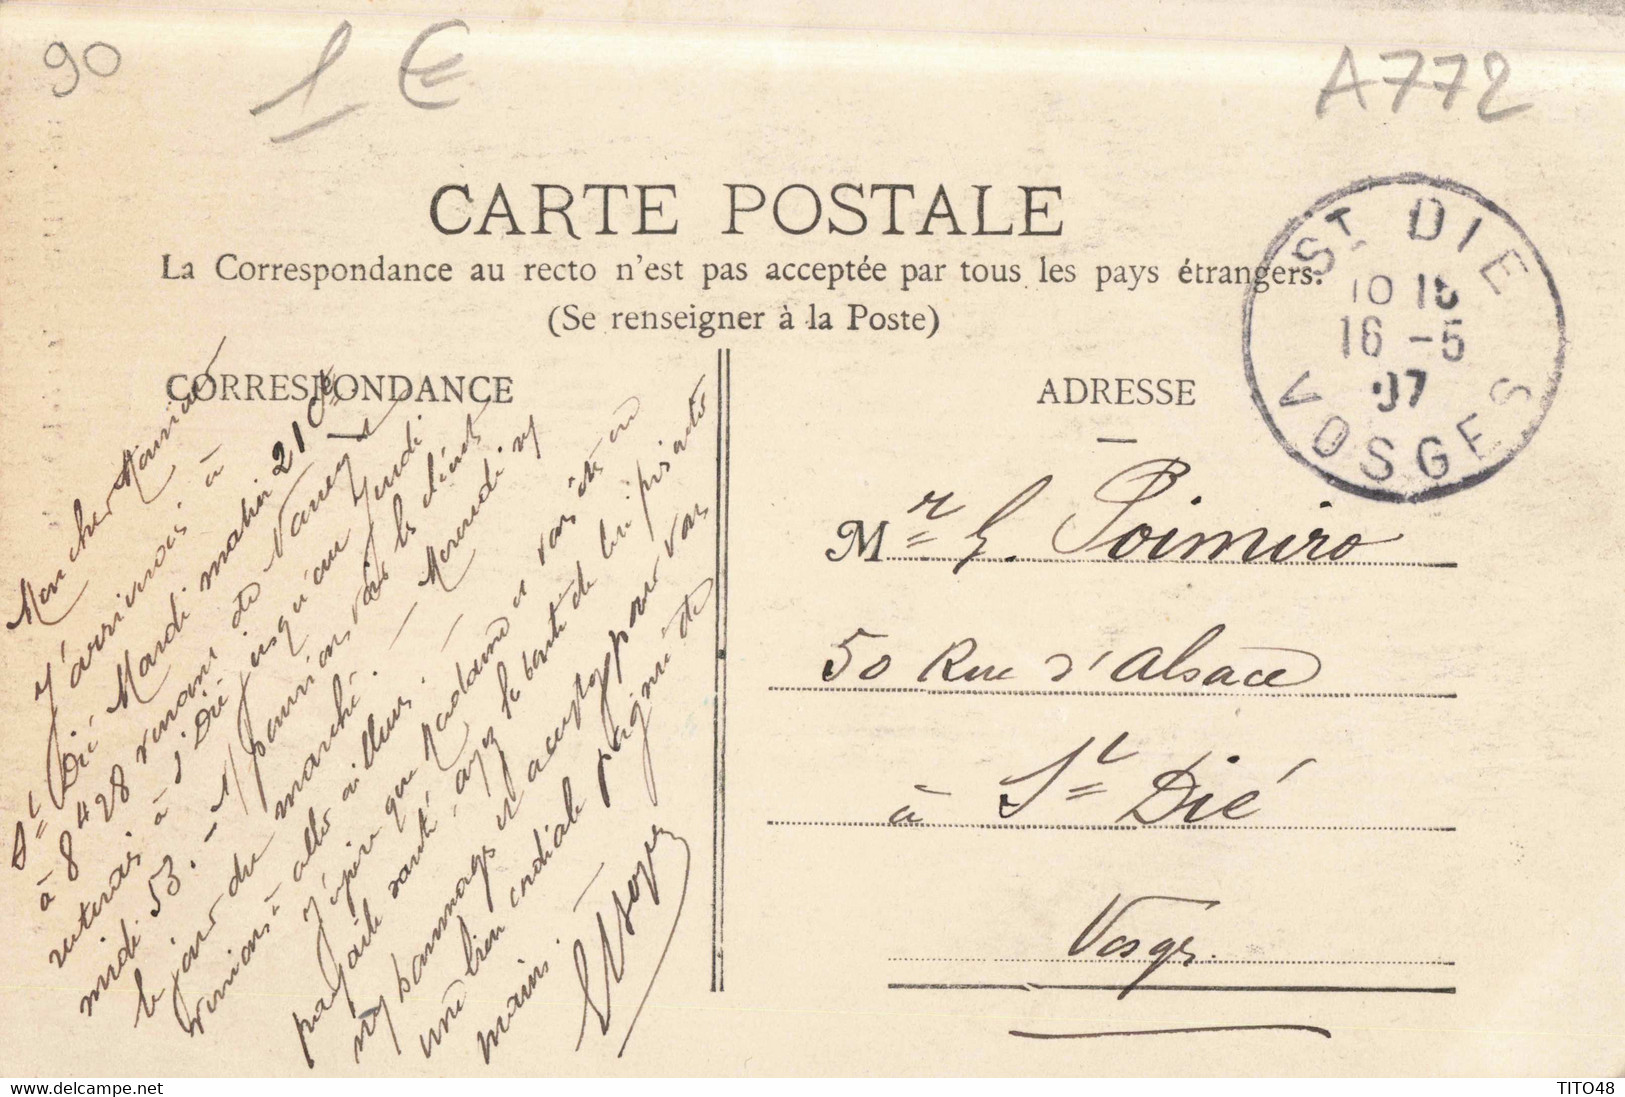 90
1 €
A772
CARTE POSTALE
La Correspondance au recto n'est pas acceptée par tous les pays étrangers.
(Se renseigner à la Poste)
CORRESPONDANCE
ADRESSE
ST DIE
10 15
16 -5
07
VOSGES
Mon cher
J'arriverais à
St Dié Mardi matin 21 Ct
à 8h28 venant de
resterais à St Dié jusqu'au Jeudi
midi 53. - Nous pourrions voir les clients
le jour du marché. - Mercredi ny
irions à
J'espère que Madame et vous êtes en
parfaite santé, ayez la bonté de lui présenter
mes hommages et acceptez pour vous
une bien cordiale poignée de
mains.
Mr G. Poimiro
50 Rue d'Alsace
à St Dié
Vosges.
TITO48